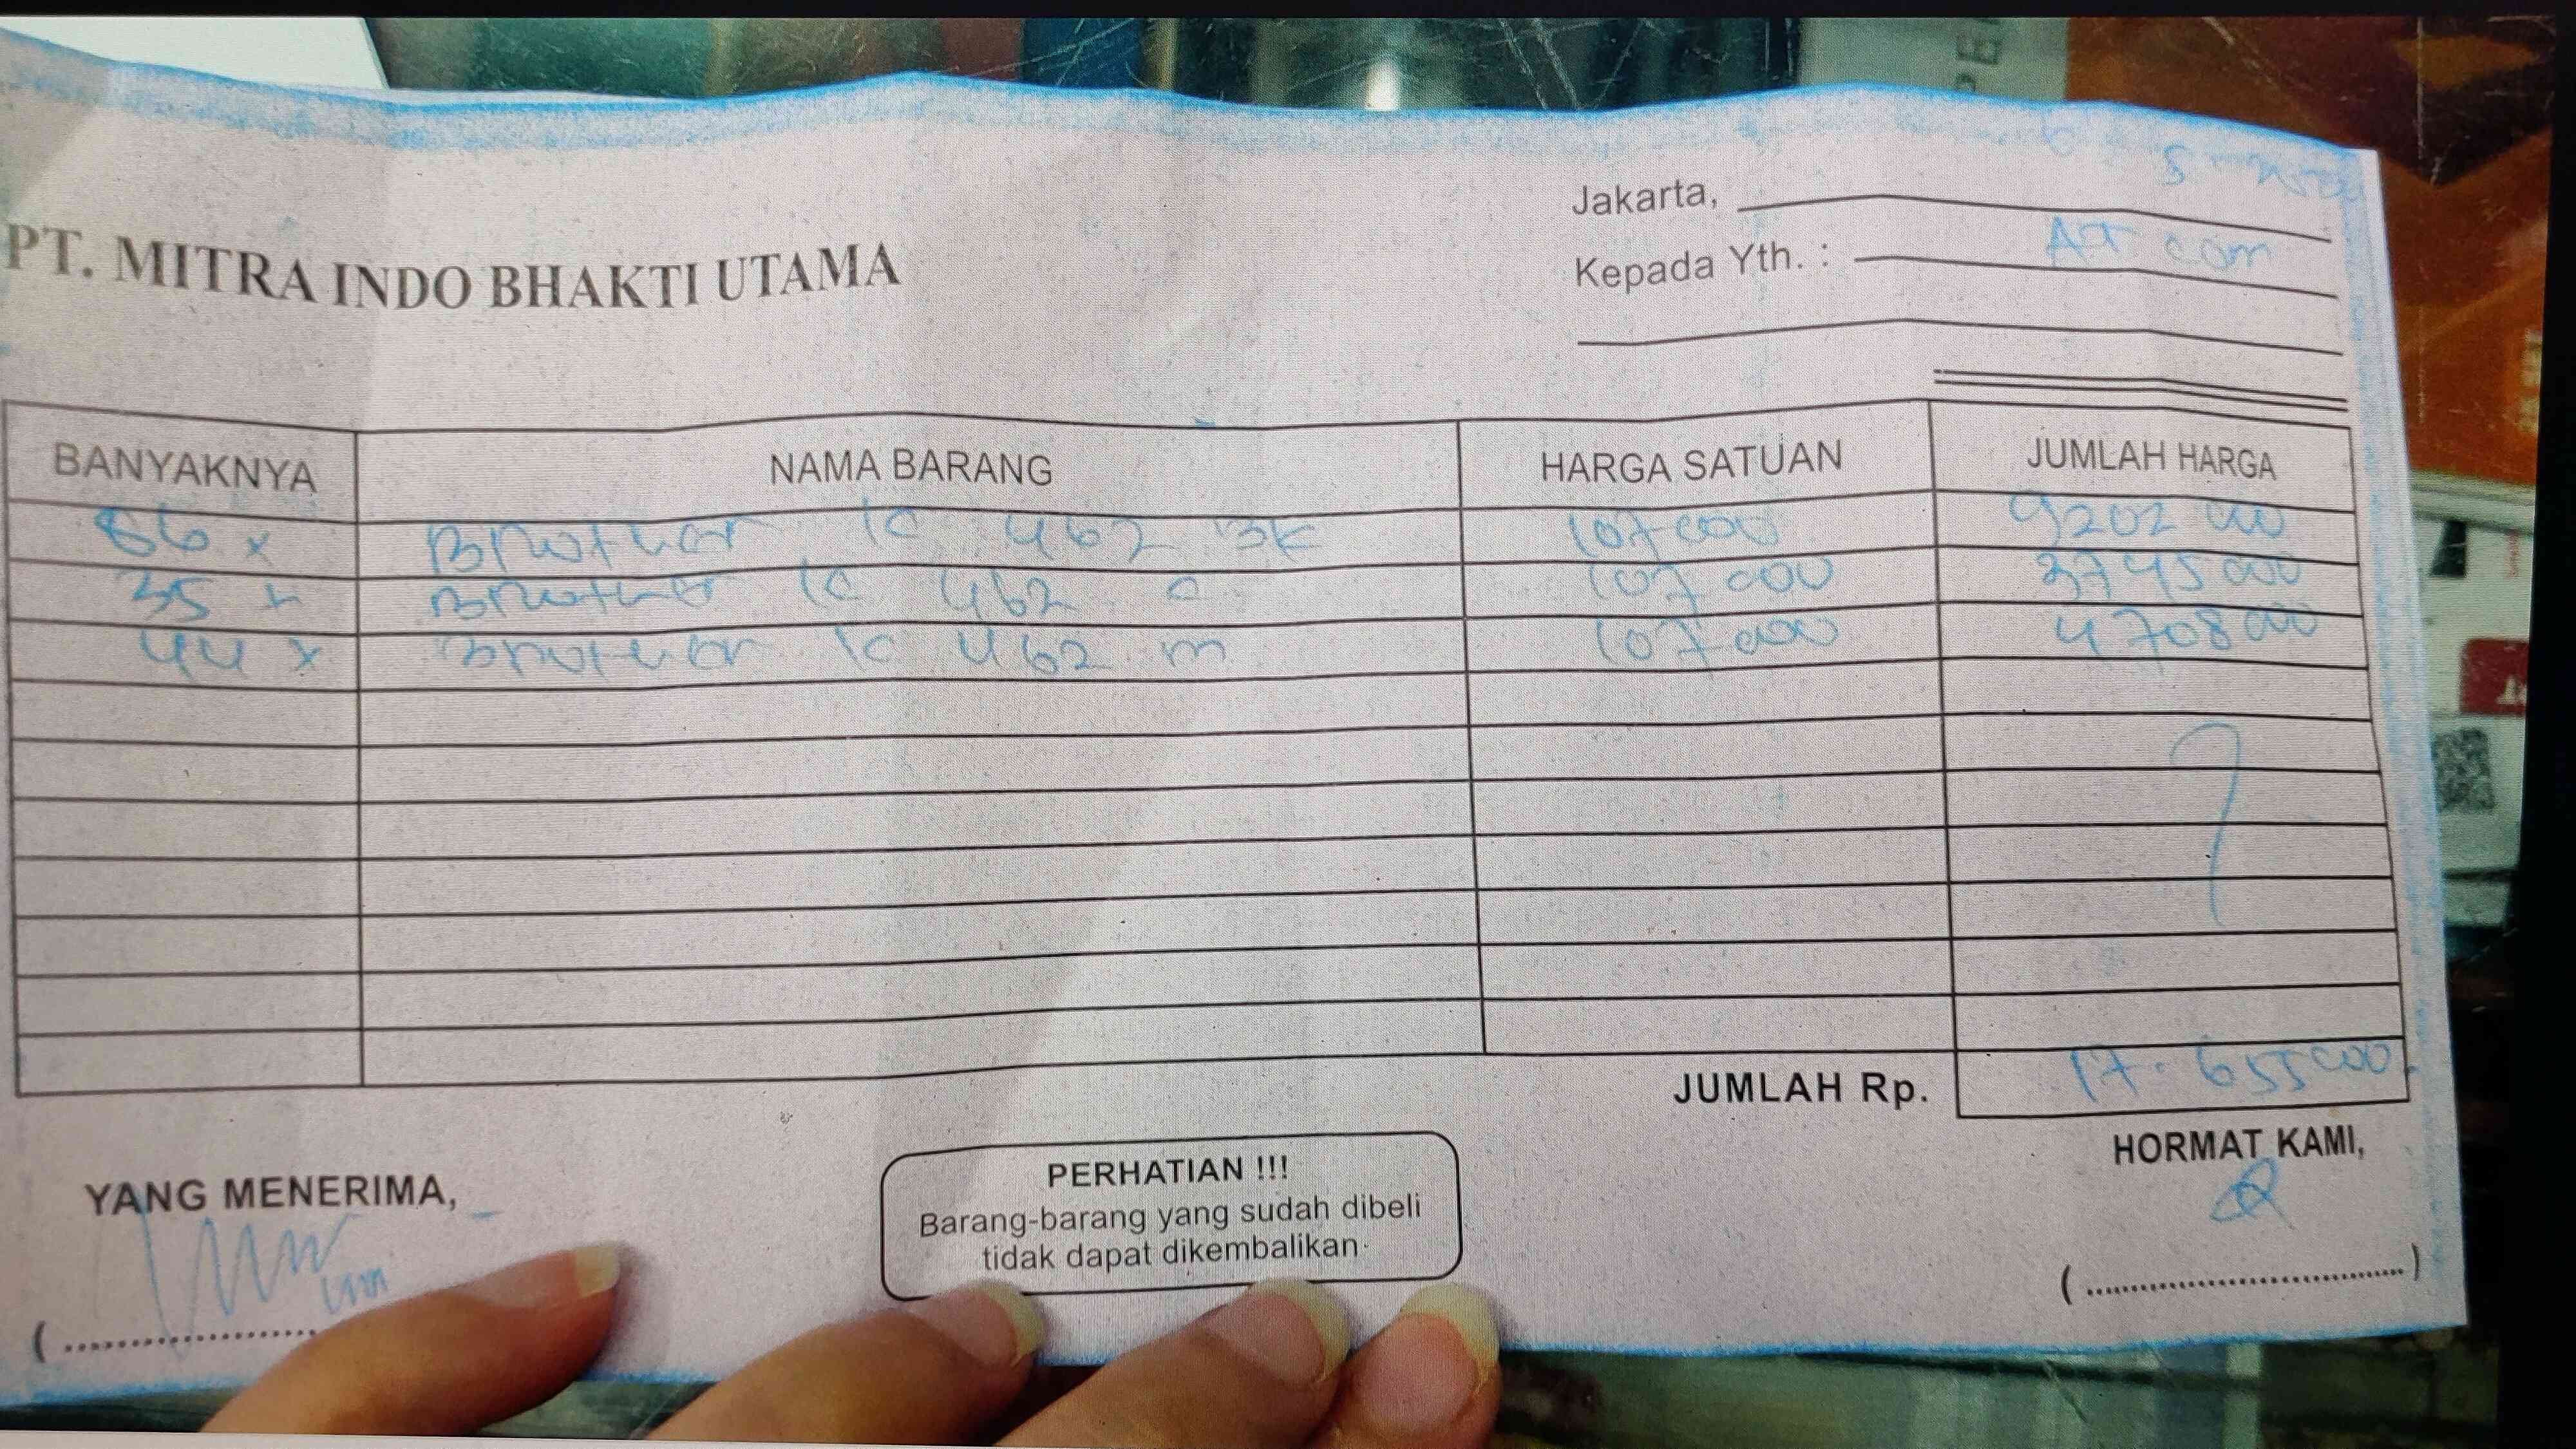 Jakarta,
PT. MITRA INDO BHAKTI UTAMA
Kepada Yth. : AT com
BANYAKNYA NAMA BARANG HARGA SATUAN JUMLAH HARGA
86 x Brother lc 462 BK 107 000 9202 000
35 x Brother lc 462 c 107 000 3745 000
44 x Brother lc 462 m 107 000 4708 000
JUMLAH Rp. 17.655 000
YANG MENERIMA,
PERHATIAN !!!
Barang-barang yang sudah dibeli
tidak dapat dikembalikan
HORMAT KAMI,